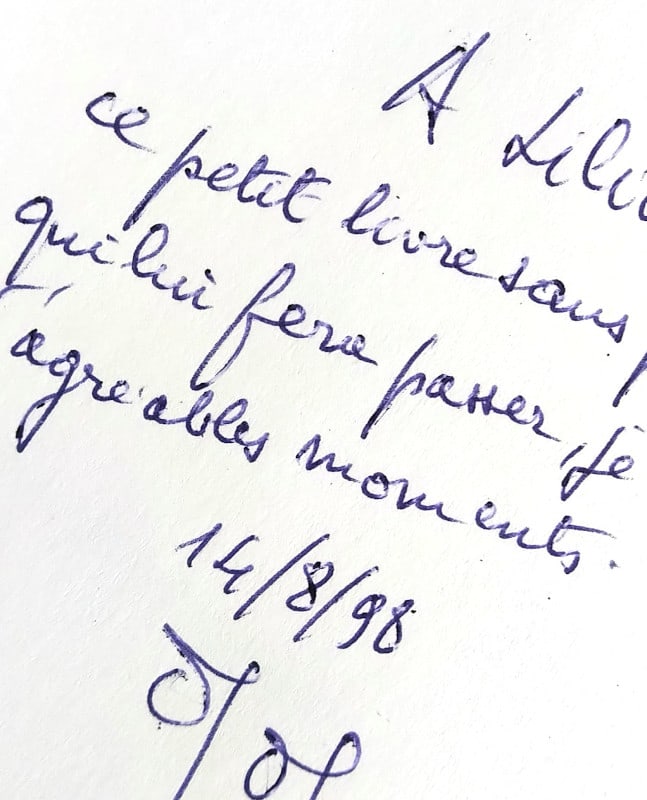 A
ce petit livre sans
qui lui fera passer, je
agréables moments.
14/8/98